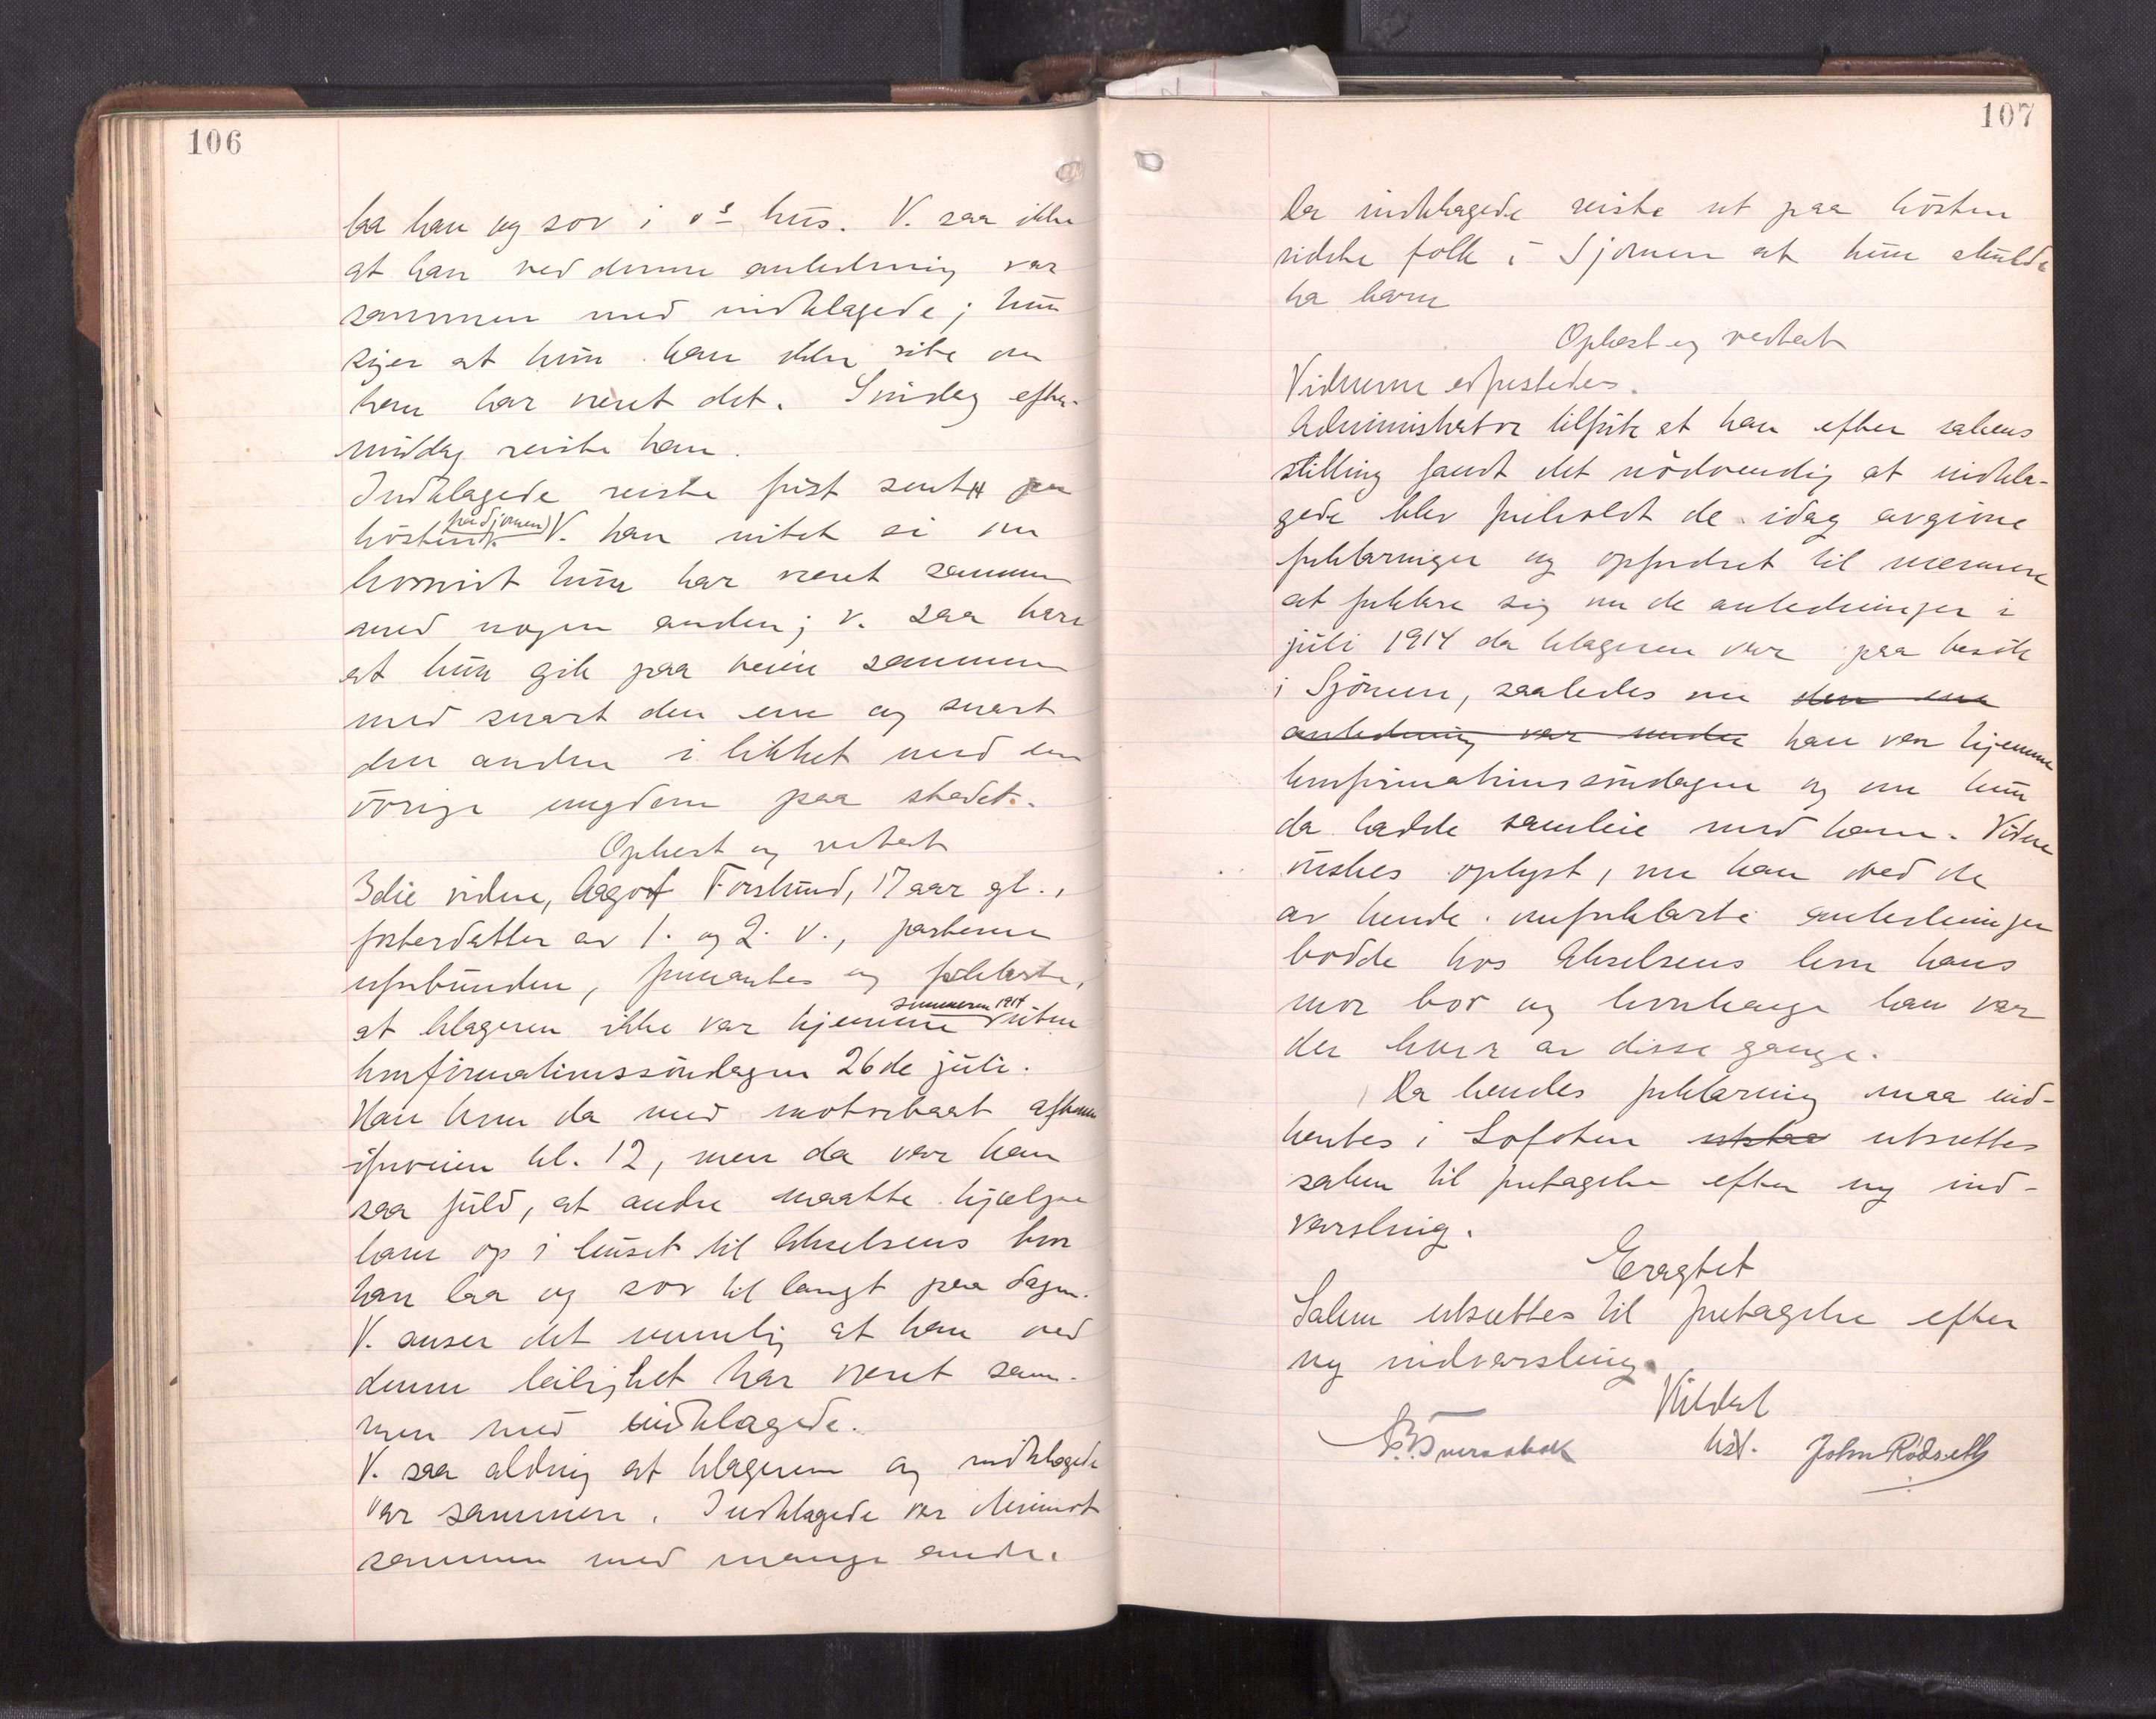 106
laa han og sov i vs hus. V. saa ikke
at han ved denne anledning var
sammen med indklagede; hun
sier at hun kan ikke vite om
han har været det. Søndag efter-
middag reiste han.
Indklagede reiste først sent paa
høsten fra Sjømen. V. kan intet si om
hvorvidt hun har været sammen
med nogen anden; v. saa bare
at hun gik paa veien sammen
med snart den ene og snart
den anden i likhet med den
øvrige ungdom paa stedet.
Oplæst og vedtat
3die vidne, Aagot Forslund, 17 aar gl.,
fosterdatter av 1. og 2. v., parterne
uforbunden, formantes og forklarte,
at klageren ikke var hjemme sommeren 1914 uten
konfirmationssøndagen 26de juli.
Han kom da med motorbaat aftenen
iforveien kl. 12, men da var han
saa fuld, at andre maatte hjælpe
ham op i huset til Akselsens hvor
han laa og sov til langt paa dagen.
V. anser det umulig at han ved
denne leilighet har været sam-
men med indklagede.
V. saa aldrig at klageren og indklagede
var sammen. Indklagede var derimot
sammen med mange andre.
107
Da indklagede reiste ut paa høsten
visste folk i Sjømen at hun skulde
ha barn
Oplæst og vedtat
Vidnerne edfæstedes.
Administrator tilførte at han efter sakens
stilling fandt det nødvendig at indkla-
gede blev foreholdt de idag avgivne
forklaringer og opfordret til nærmere
at forklare sig om de anledninger i
juli 1914 da klageren var paa besøk
i Sjømen, saaledes om den ene
anledning var under han var hjemme
konfirmationssøndagen og om hun
da hadde samleie med ham. Videre
ønskes oplyst, om han ved de
av hende omforklarte anledninger
bodde hos Akselsens hvor hans
mor bor og hvorlænge han var
der hver av disse gange.
Da hendes forklaring maa ind-
hentes i Lofoten utsættes
saken til foretagelse efter ny ind-
varsling.
Eragtet
Saken utsættes til foretagelse efter
ny indvarsling.
John Rödseth